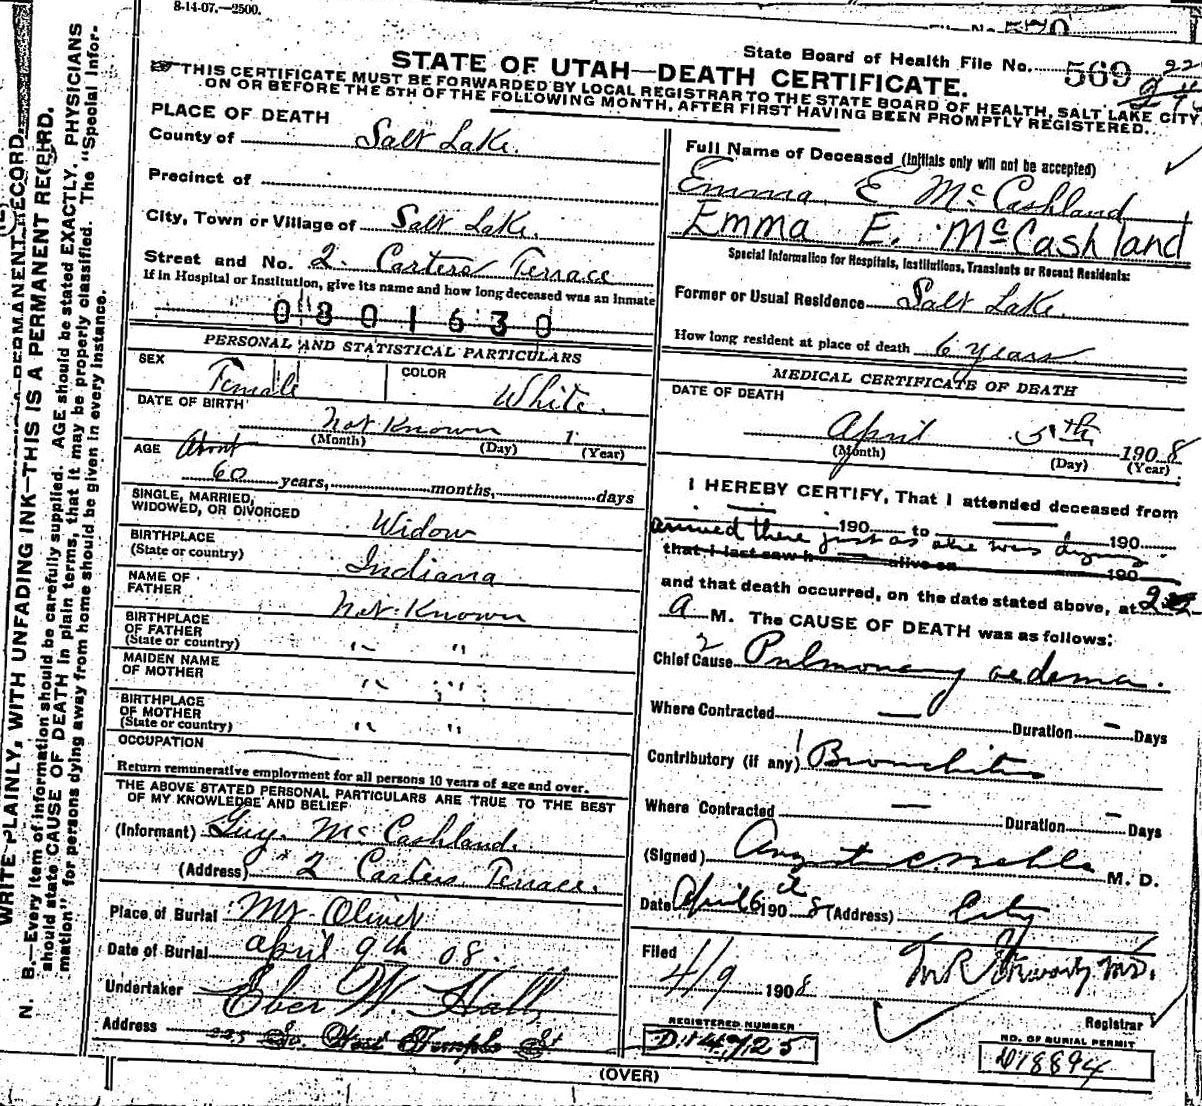 8-14-07.—2500.
570
State Board of Health File No. 569
STATE OF UTAH—DEATH CERTIFICATE.
THIS CERTIFICATE MUST BE FORWARDED BY LOCAL REGISTRAR TO THE STATE BOARD OF HEALTH, SALT LAKE CITY,
ON OR BEFORE THE 5TH OF THE FOLLOWING MONTH, AFTER FIRST HAVING BEEN PROMPTLY REGISTERED.
WRITE PLAINLY, WITH UNFADING INK—THIS IS A PERMANENT RECORD.
N. B.—Every item of information should be carefully supplied. AGE should be stated EXACTLY. PHYSICIANS
should state CAUSE OF DEATH in plain terms, that it may be properly classified. The "Special Infor-
mation" for persons dying away from home should be given in every instance.
PLACE OF DEATH
County of Salt Lake.
Precinct of
City, Town or Village of Salt Lake.
Street and No. 2. Carters Terrace
If in Hospital or Institution, give its name and how long deceased was an inmate
0801630
PERSONAL AND STATISTICAL PARTICULARS
SEX Female COLOR White.
DATE OF BIRTH Not Known 1
(Month) (Day) (Year)
AGE About
60 years, months, days
SINGLE, MARRIED,
WIDOWED, OR DIVORCED Widow
BIRTHPLACE
(State or country) Indiana
NAME OF
FATHER Not Known
BIRTHPLACE
OF FATHER
(State or country) " "
MAIDEN NAME
OF MOTHER " "
BIRTHPLACE
OF MOTHER
(State or country) " "
OCCUPATION —
Return remunerative employment for all persons 10 years of age and over.
THE ABOVE STATED PERSONAL PARTICULARS ARE TRUE TO THE BEST
OF MY KNOWLEDGE AND BELIEF
(Informant) Guy McCashland.
(Address) 2 Carters Terrace.
Place of Burial Mt. Olivet
Date of Burial April 9th 08.
Undertaker Eber W. Hall
Address 225 So. West Temple St
Full Name of Deceased (Initials only will not be accepted)
Emma E McCashland
Emma E. McCashland
Special Information for Hospitals, Institutions, Transients or Recent Residents:
Former or Usual Residence Salt Lake.
How long resident at place of death 6 years
MEDICAL CERTIFICATE OF DEATH
DATE OF DEATH
April 5th 1908
(Month) (Day) (Year)
I HEREBY CERTIFY, That I attended deceased from
— 190 to — 190
arrived there just as she was dying.
that I last saw h — alive on 190
and that death occurred, on the date stated above, at 2
A M. The CAUSE OF DEATH was as follows:
Chief Cause 2 Pulmonary oedema.
Where Contracted — Duration — Days
Contributory (if any) 1 Bronchitis
Where Contracted — Duration — Days
(Signed) M. D.
Date April 6 1908 (Address) City
Filed
4/9 1908
Registrar
REGISTERED NUMBER
D14725
NO. OF BURIAL PERMIT
D18894
(OVER)